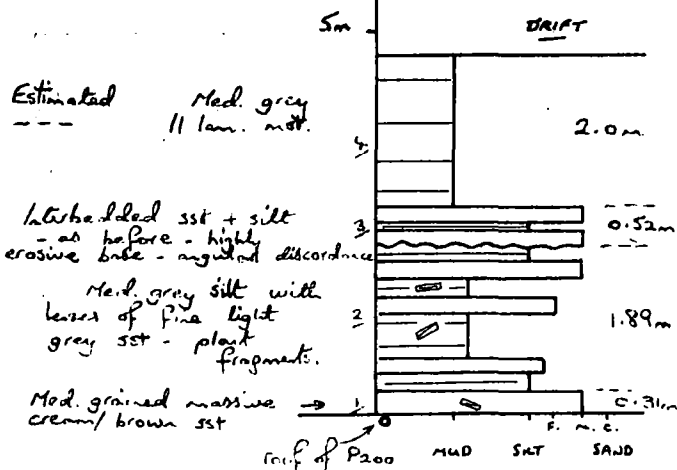 5m
DRIFT
Estimated
Med. grey
// lam. mst.
2.0m
4
Interbedded sst + silt
- as before - highly
erosive base - angular discordance
3
0.52m
Med. grey silt with
lenses of fine light
grey sst - plant
fragments.
2
1.89m
Med. grained massive
cream/brown sst
1
0.31m
0
roof of P200
MUD SILT F. M. C. SAND